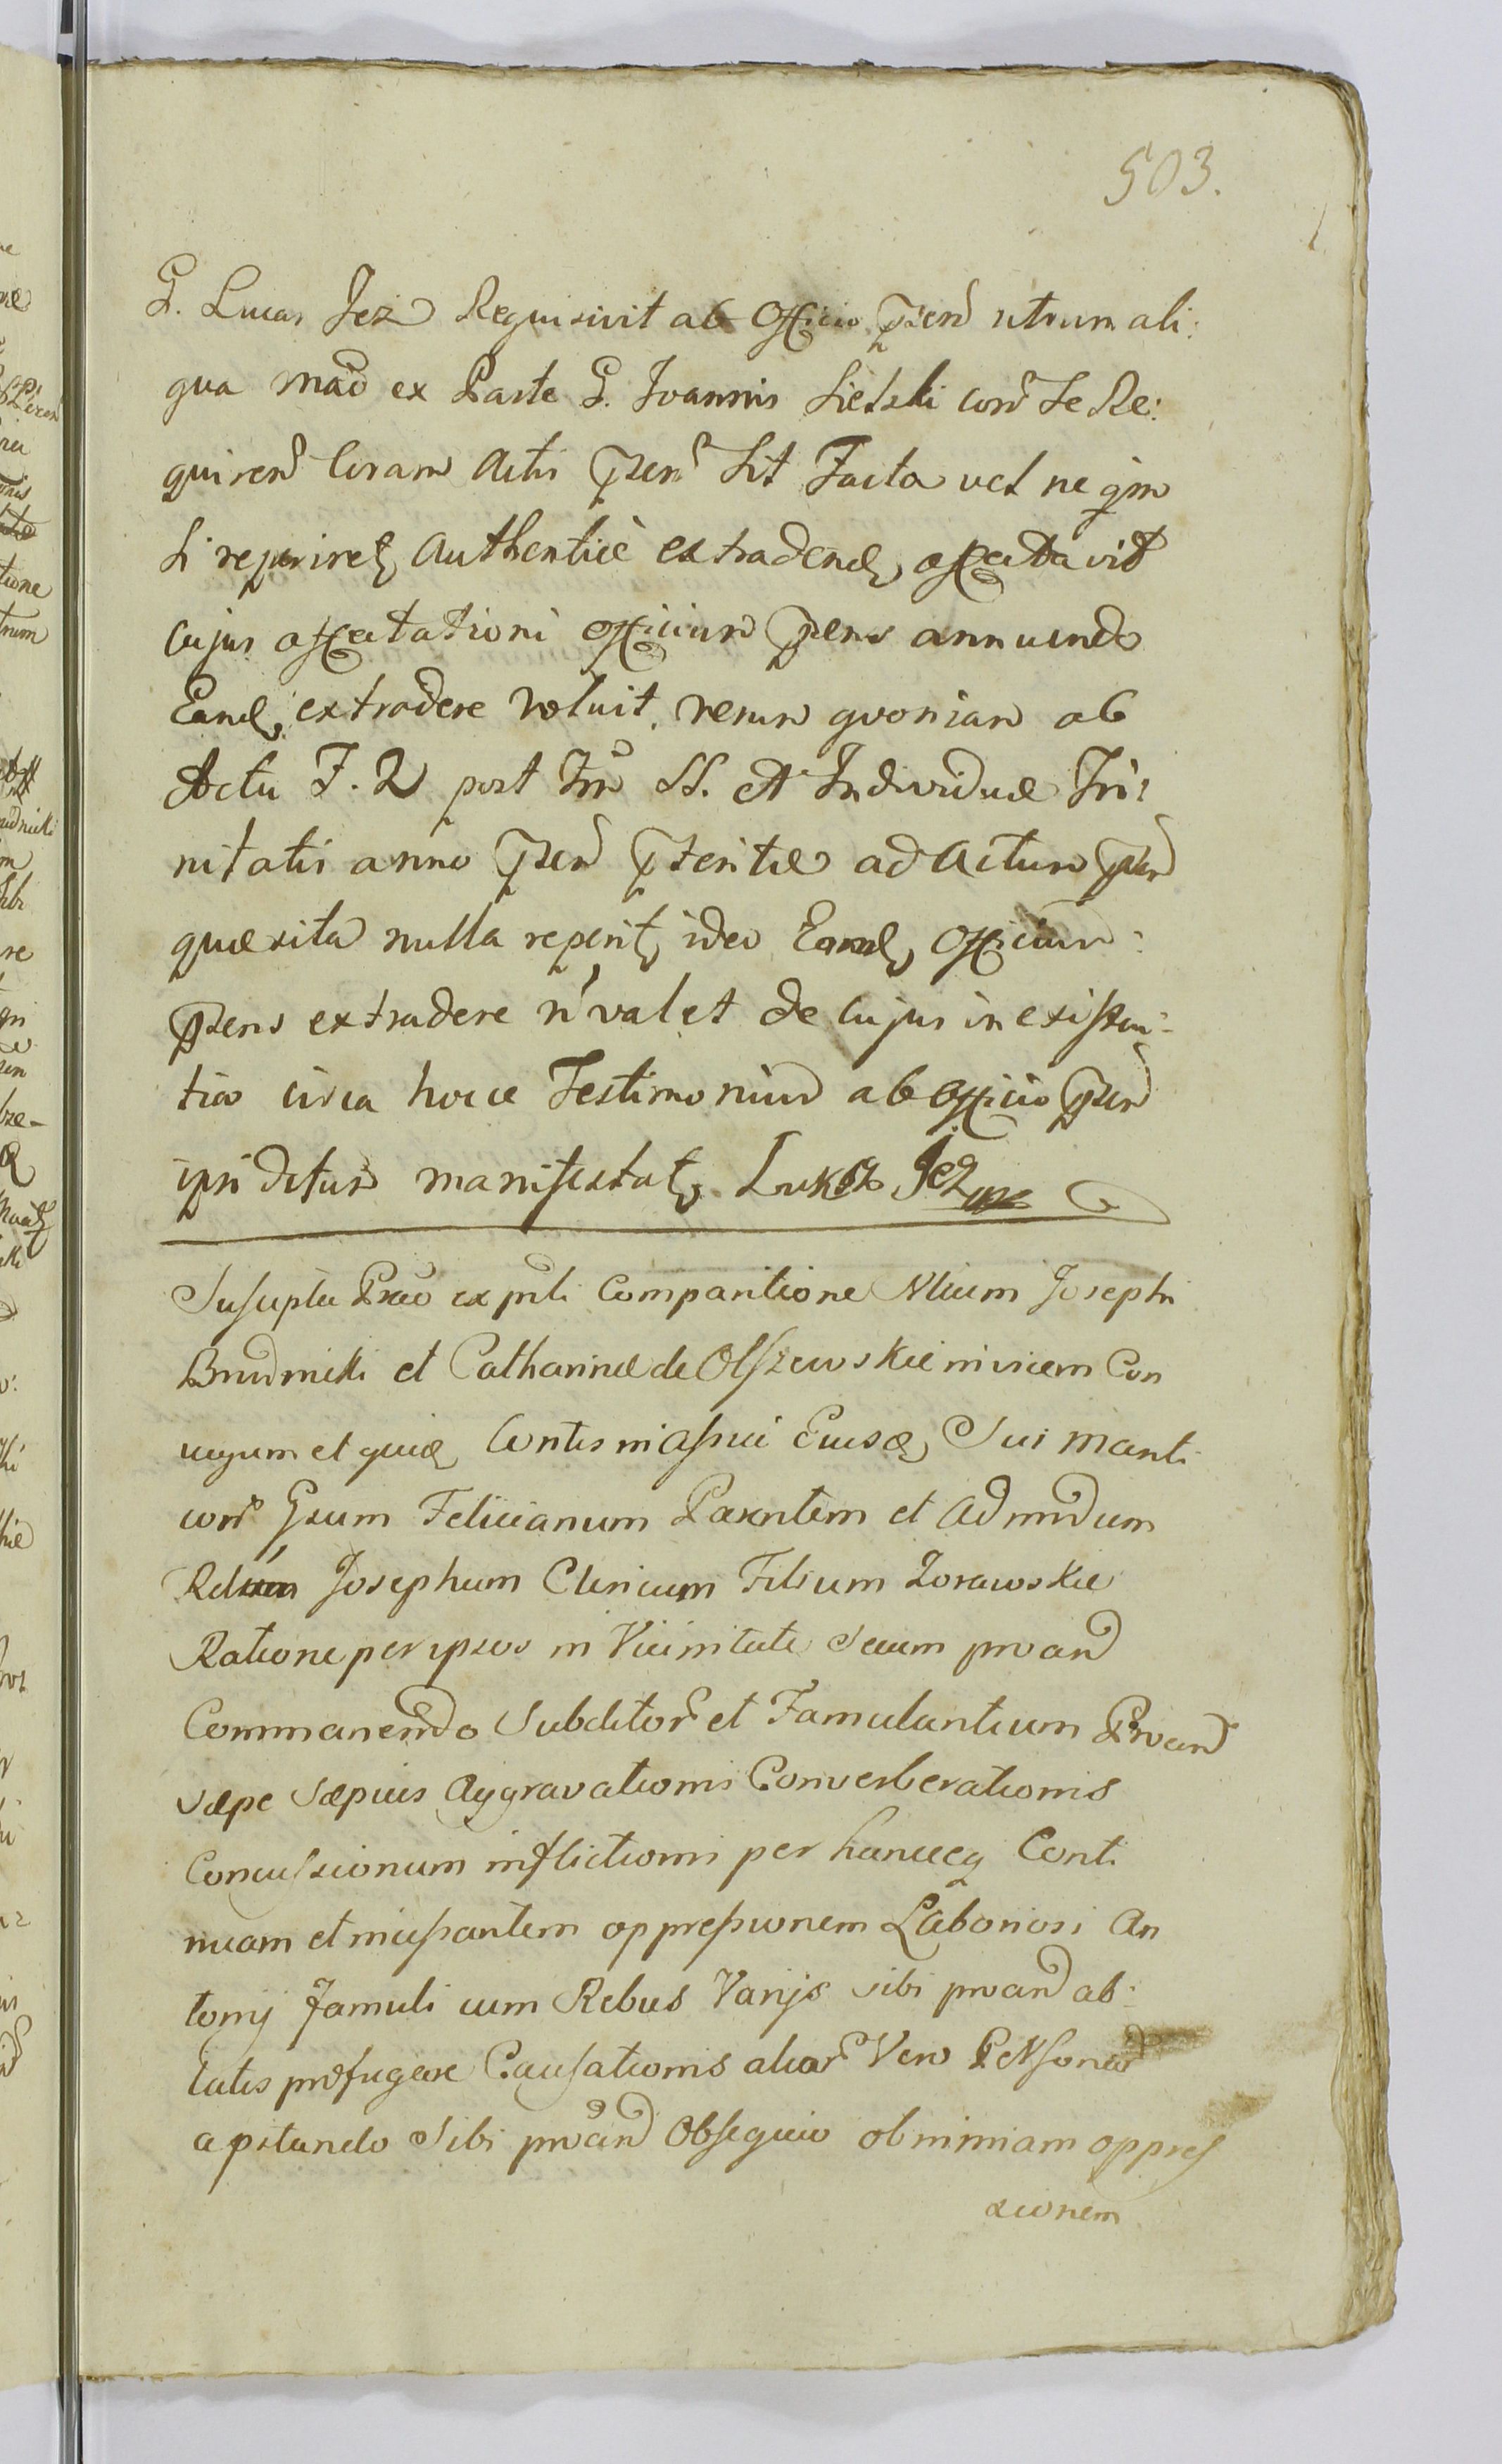 503.
G. Lucas Jez Requisivit ab Officio pren utrum ali:
qua mao ex Parte G. Joannis Sietski con Se Re:
quiren Coram Actis pren Sit Facta vel ne qm
si reperiret Authentice extradend affectavit
Cujus affectationi officium prens annuendo
Eand extradere voluit, verum quoniam ab
Actu F. 2 post Fm SS. et Individuæ Tri:
nitatis anno pren præteritæ ad Actum pren
quæsita nulla reperit, ideo Eand officium
prens extradere n valet de Cujus inexisten:
tia circa hocce Testimonium ab officio pren
ipsi datum manifestat, Lukasz Jez
Suscepta Prao ex psli Comparitione Nlium Josephi
Brudnicki et Catharinæ de Olszewskie invicem Con
iugum et quid Contis in assii Eiusd, Sui Mariti
con Gsum Felicianum Parentem et Admdum
Rdum Josephum Clericum Filium Zorawskie
Ratione per ipsos in Vicinitate Secum proand
Commanendo Subditor et Famulantium Proand
sæpe sæpius Aggravationis Converberationis
Concussionum inflictionis per hancceq Conti
nuam et incessantem oppressionem Laboriosi An
tonij famuli cum Rebus Varijs sibi proand ab:
latis profugere Causationis aliar Vero Personar
a pstando Sibi proand Obsequio ob nimiam oppres
sionem